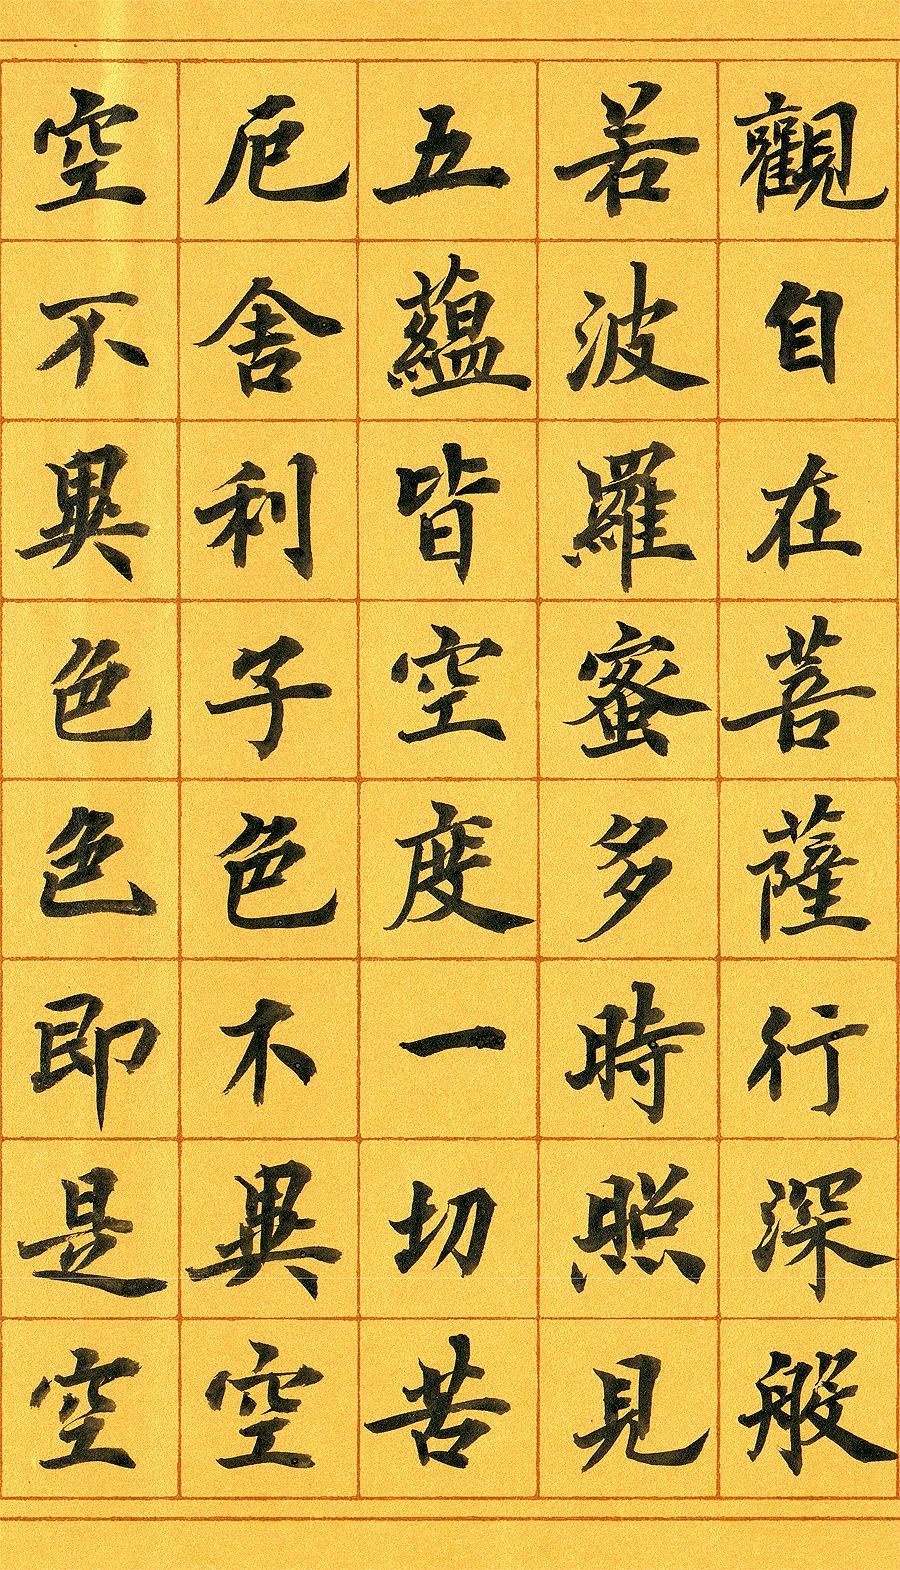 觀自在菩薩行深般
若波羅蜜多時照見
五蘊皆空度一切苦
厄舍利子色不異空
空不異色色即是空